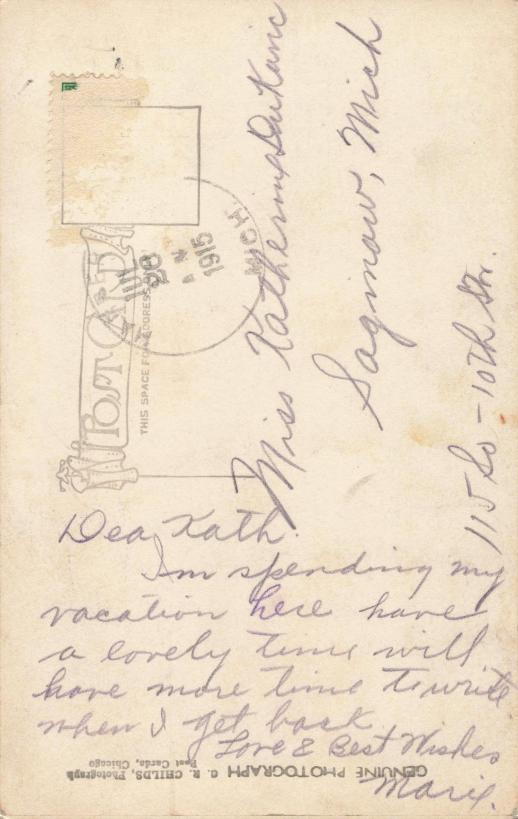 POST CARD
THIS SPACE FOR ADDRESS
JUL
26
A
1915
MICH.
Miss Katherine
Saginaw, Mich
115 So - 10th Str.
Dea Kath.
I'm spending my
vacation here have
a lovely time will
have more time to write
when I get back
Love & Best Wishes
Marie.
GENUINE PHOTOGRAPH C. R. CHILDS, Photograph
Post Cards, Chicago